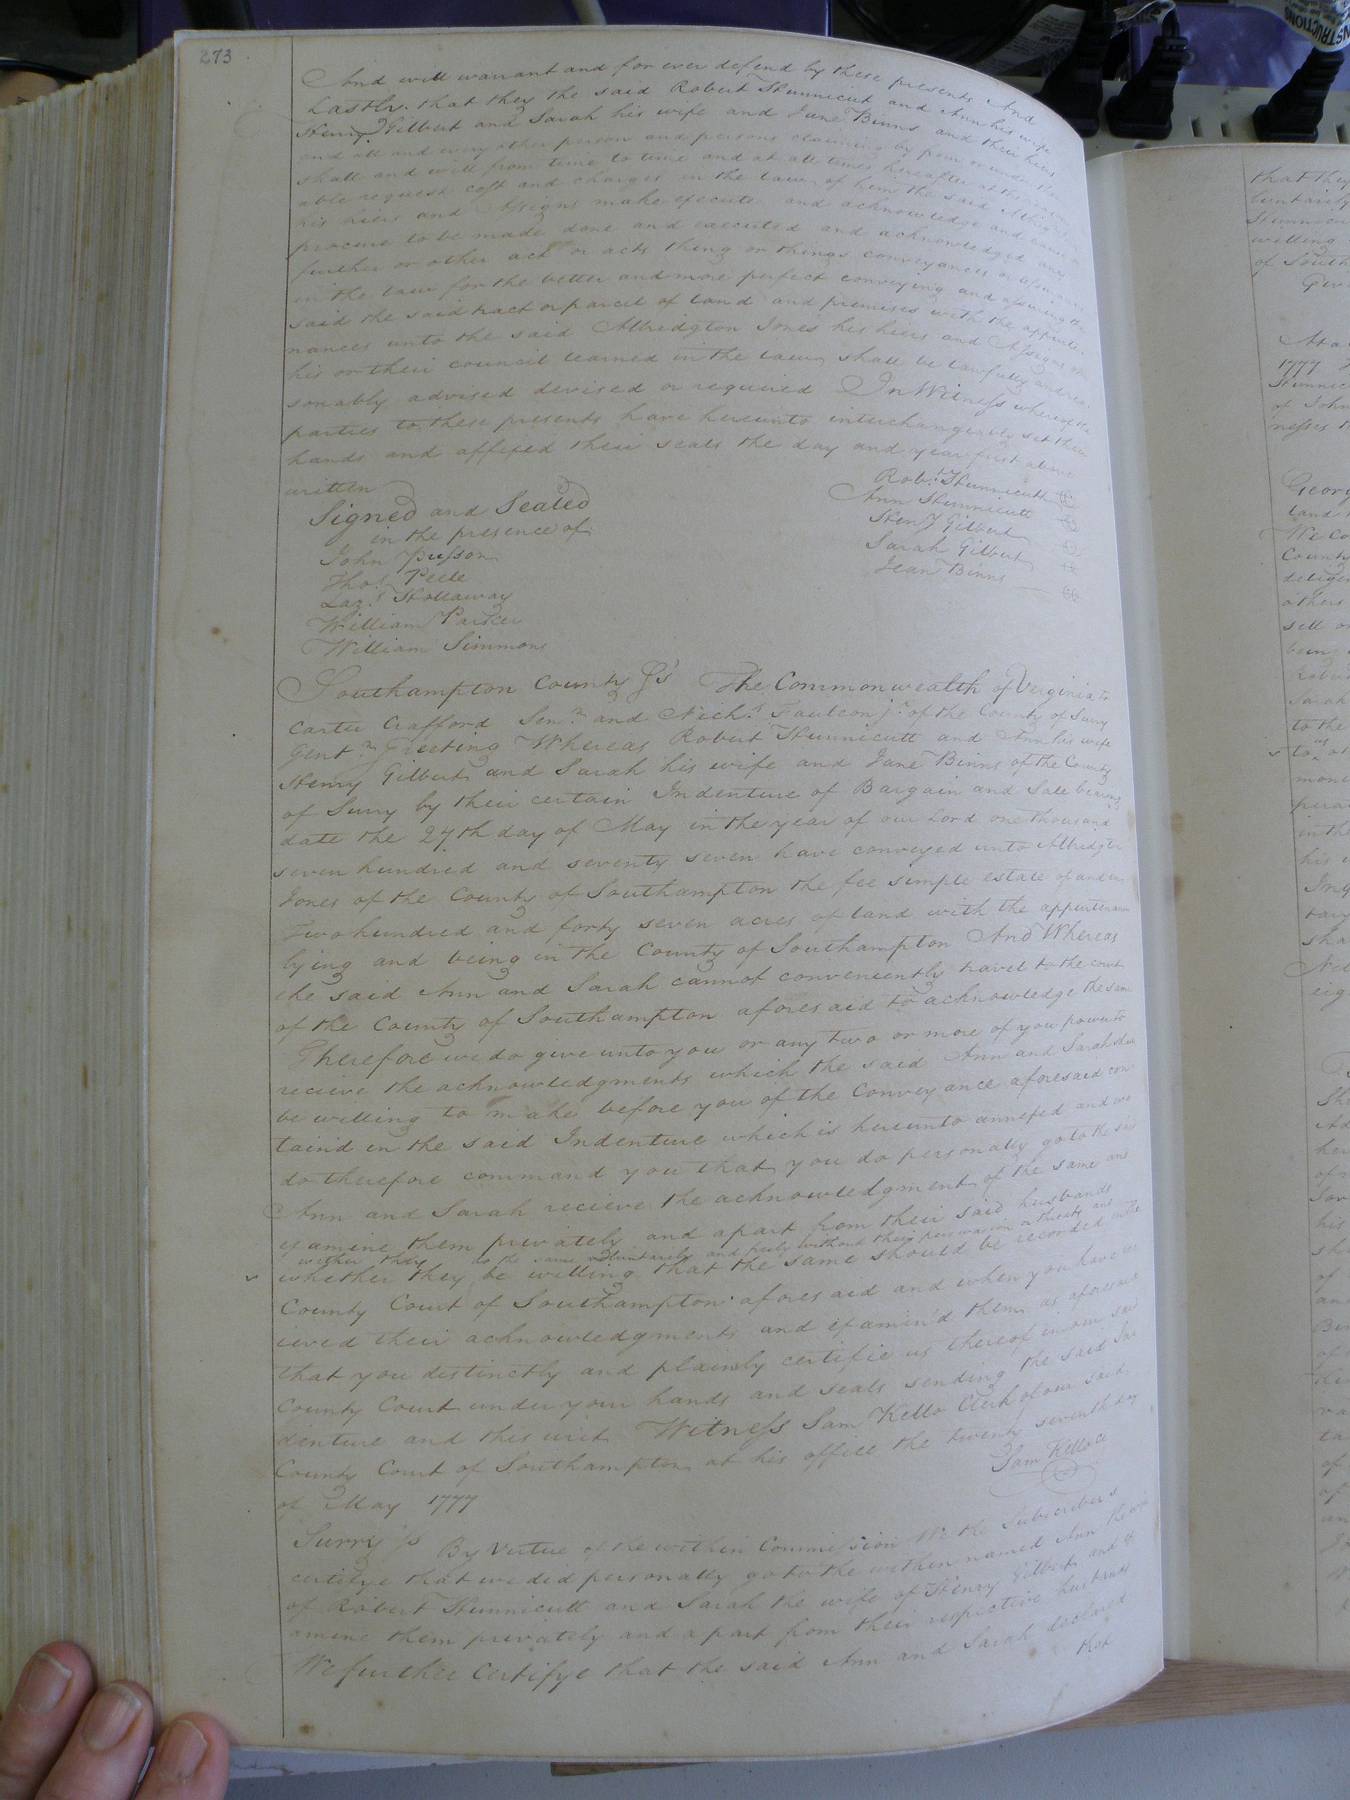 273
And will warrant and for ever defend by these presents And
Lastly that they the said Robert Hunnicut and Ann his wife
Henry Gilbert and Sarah his wife and Jane Binns and their heirs
and all and every other person and persons claiming by from or under them
shall and will from time to time and at all times hereafter at the reason
able request cost and charges in the law of him the said Albridgton
his heirs and Assigns make execute and acknowledge and cause or
procure to be made done and executed and acknowledged any
further or other act or acts thing or things conveyances or assurances
in the law for the better and more perfect conveying and assuring the
said the said tract or parcel of land and premises with the appurte
nances unto the said Albridgton Jones his heirs and Assigns
his or their council learned in the law shall be lawfully and rea
sonably advised devised or required In Witness whereof the
parties to these presents have hereunto interchangeably set their
hands and affixed their seals the day and year first above
written
Signed and Sealed
in the presence of
John
Thos. Peete
Lazs. Hollaway
William Parker
William Simmons
Robt. Hunnicutt
Ann Hunnicutt
Heny Gilbert
Sarah Gilbert
Jean Binns
Southampton County Js The Commonwealth of Virginia to
Carter Crafford Senr. and Nichs. Faulcon jr. of the County of Surry
Gentn. Greeting Whereas Robert Hunnicutt and Ann his wife
Henry Gilbert and Sarah his wife and Jane Binns of the County
of Surry by their certain Indenture of Bargain and Sale bearing
date the 27th day of May in the year of our Lord one thousand
seven hundred and seventy seven have conveyed unto Albridgton
Jones of the County of Southampton the fee simple estate of and in
Two hundred and forty seven acres of land with the appurtenan
lying and being in the County of Southampton And Whereas
the said Ann and Sarah cannot conveniently travel to the court
of the County of Southampton aforesaid to acknowledge the same
Therefore we do give unto you or any two or more of you power to
recieve the acknowledgments which the said Ann and Sarah shall
be willing to make before you of the Conveyance aforesaid con
taind in the said Indenture which is hereunto annexed and we
do therefore command you that you do personally go to the said
Ann and Sarah recieve the acknowledgment of the same and
examine them privately and apart from their said husbands
wether they do the same voluntarily and freely without their perswasion or threats and
whether they be willing that the same should be recorded in the
County Court of Southampton aforesaid and when you have re
ceived their acknowledgments and examin'd them as aforesaid
that you distinctly and plainly certifie us thereof in our said
County Court under your hands and seals sending the said In
denture and this writ Witness Sam Kello Clerk of our said
County Court of Southampton at his office the twenty seventh day
of May 1777
Sam Kello C
Surry Js By Virtue of the within Commission We the Subscribers
certifye that we did personally go to the within named Ann the wife
of Robert Hunnicutt and Sarah the wife of Henry Gilbert and
amine them privately and apart from their respective husbands
We further Certifye that the said Ann and Sarah declared
that